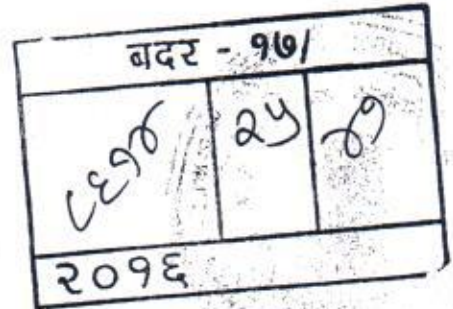 बदर - १७/
८६१४ २५ ४१
२०१६